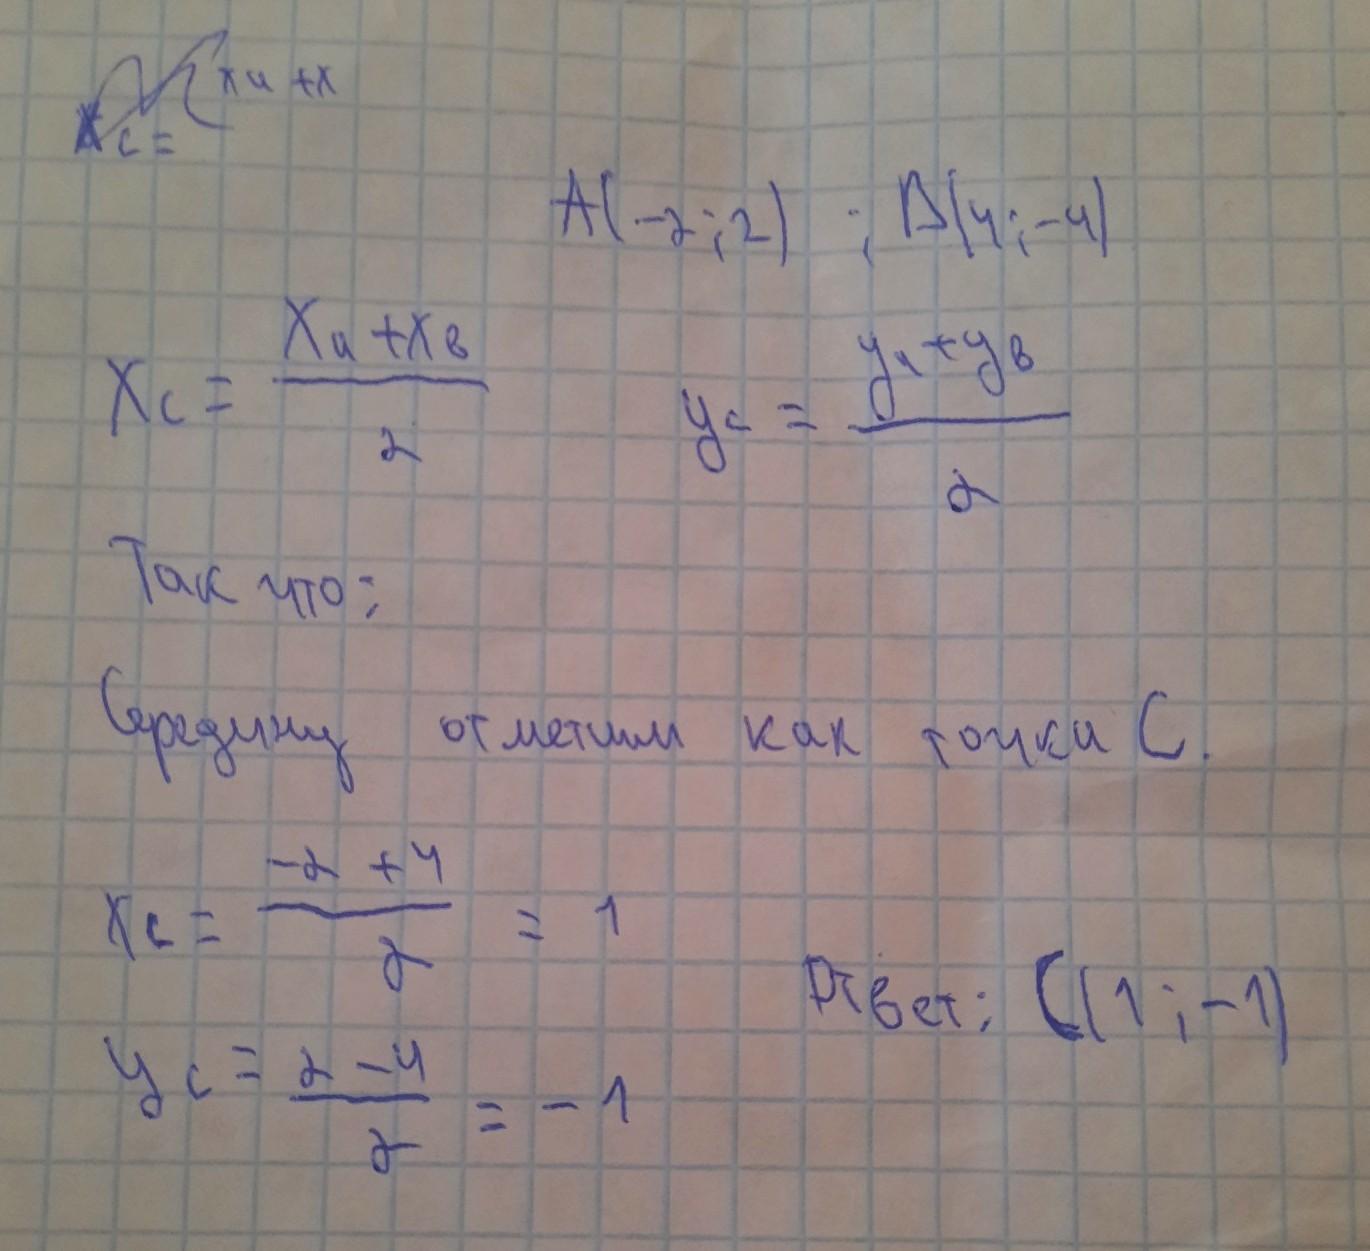 Xc = Xa + X
A(-2; 2) ; B(4; -4)
Xc = (Xa + Xв)/2    yc = (ya + yв)/2
Так что:
Середину отметим как точка C.
Xc = (-2 + 4)/2 = 1
Ответ: C(1; -1)
yc = (2 - 4)/2 = -1